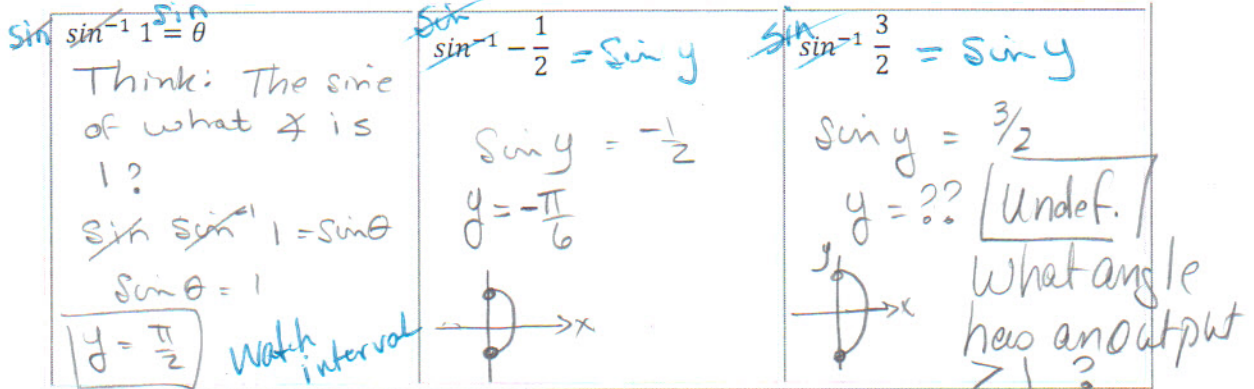 sin sin⁻¹ 1 sin = θ
Think: The sine
of what ∡ is
1?
sin sin⁻¹ 1 = sin θ
sin θ = 1
y = π/2
Watch
interval
sin
sin⁻¹ - 1/2 = sin y
sin y = -1/2
y = -π/6
x
sin
sin⁻¹ 3/2 = sin y
sin y = 3/2
y = ?? Undef.
y
x
what angle
has an output
> 1 ?